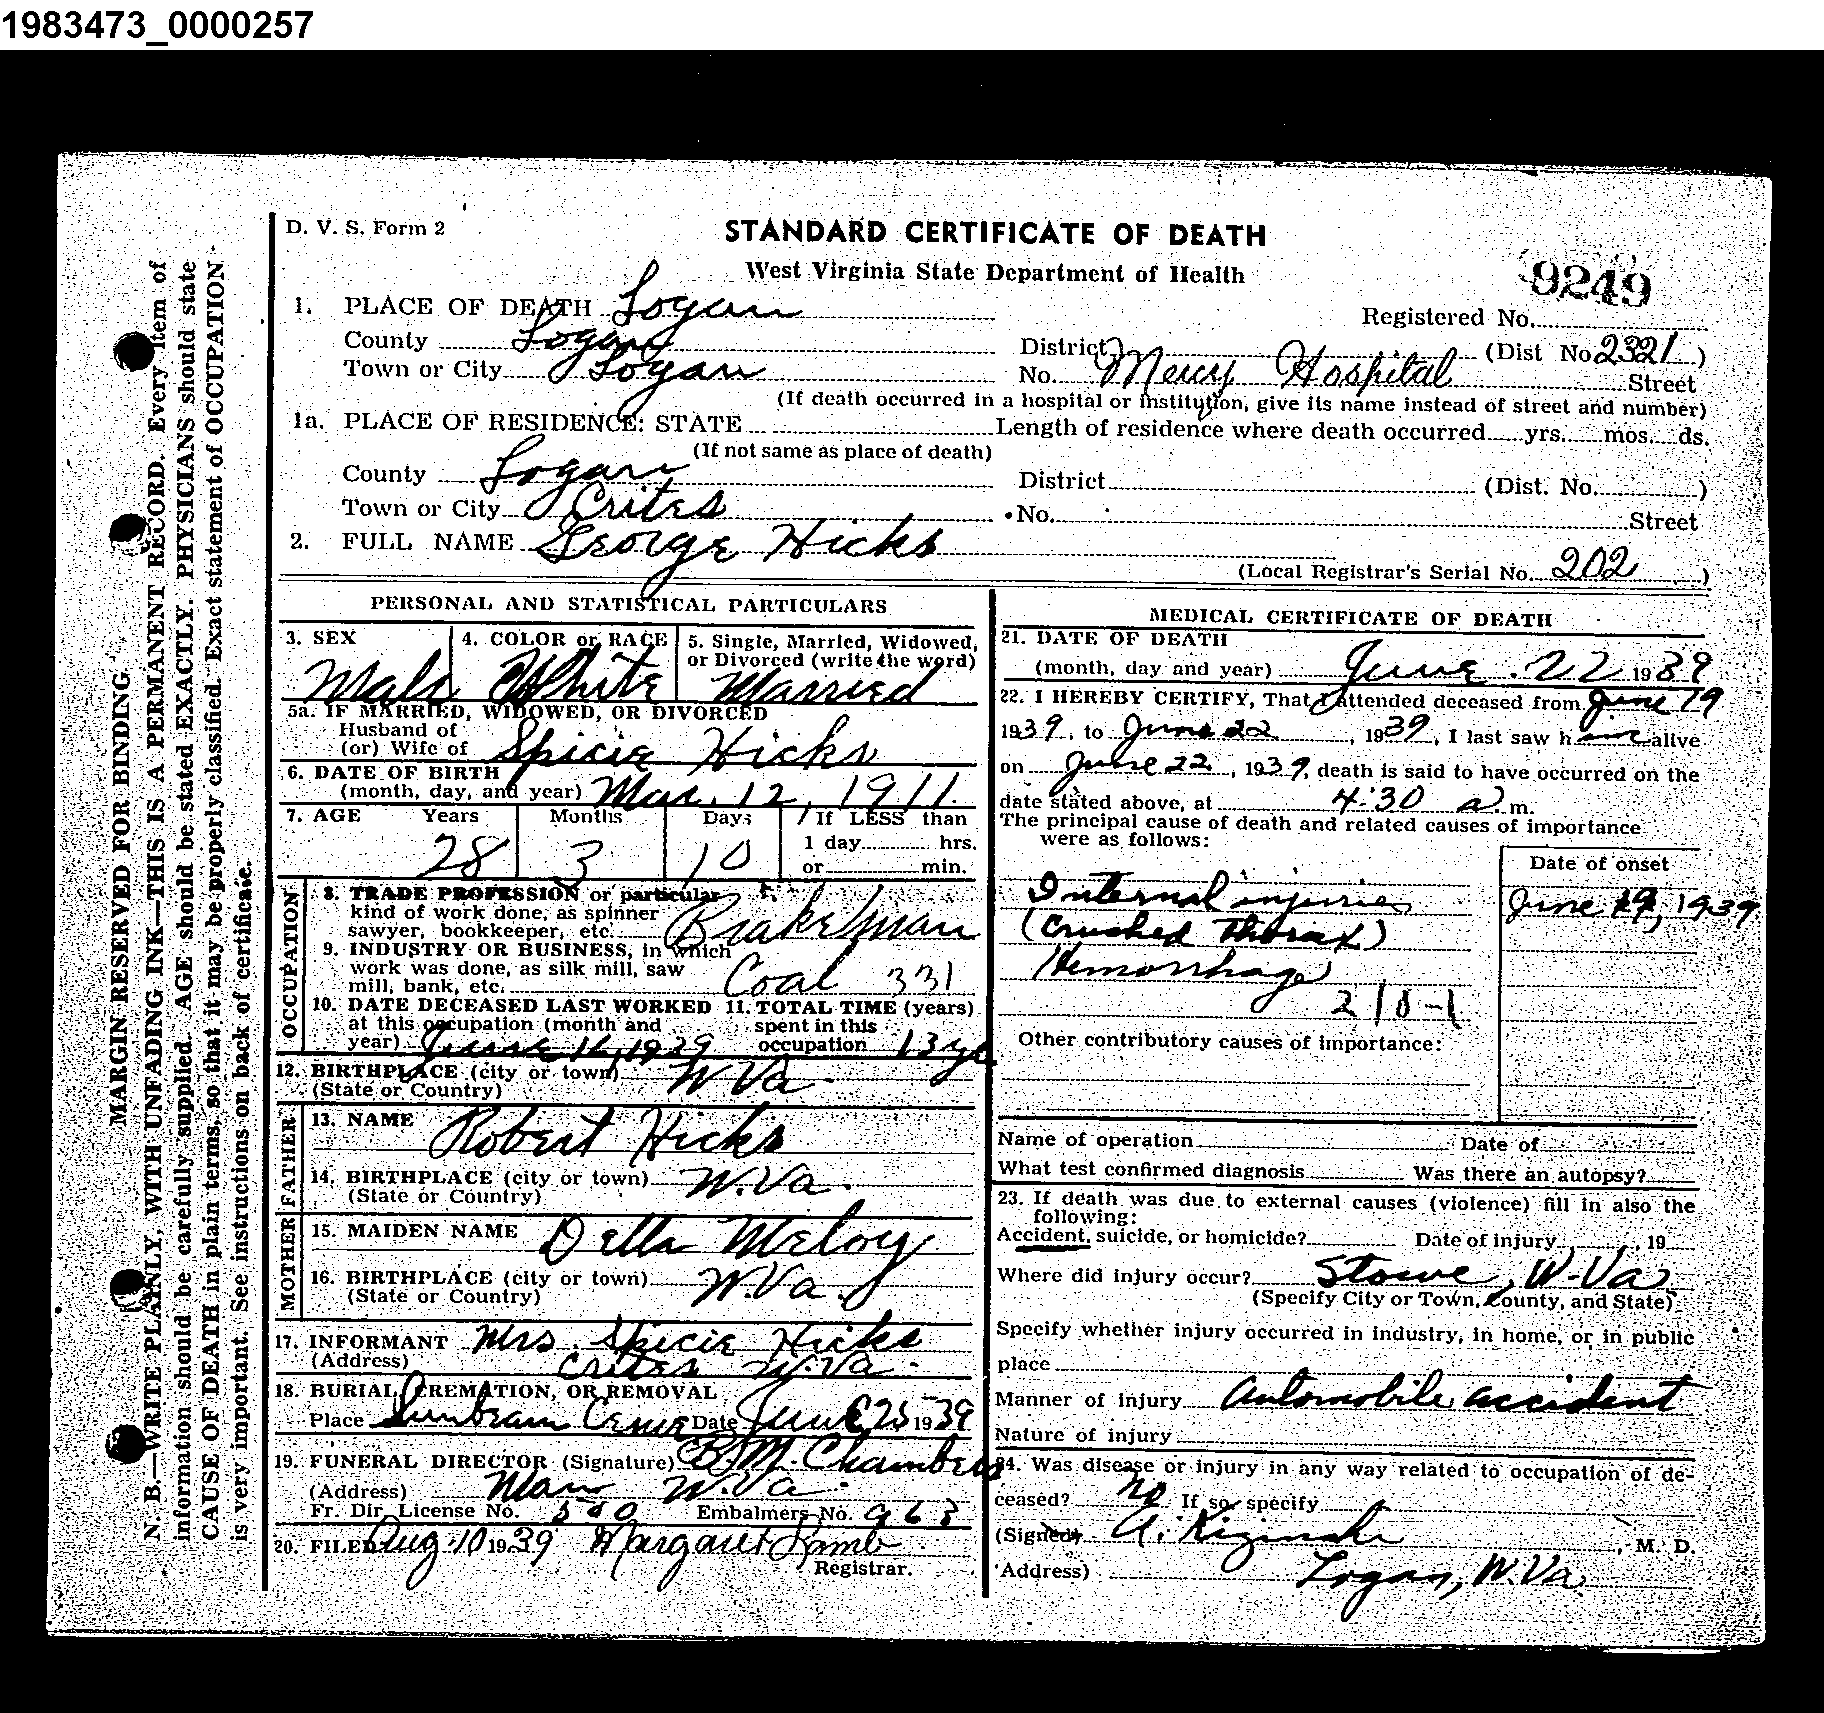 1983473_0000257
D. V. S. Form 2
STANDARD CERTIFICATE OF DEATH
West Virginia State Department of Health
9249
1. PLACE OF DEATH Logan
Registered No.
County Logan
District (Dist No 2321)
Town or City Logan
No. Mercy Hospital Street
(If death occurred in a hospital or institution, give its name instead of street and number)
1a. PLACE OF RESIDENCE: STATE
Length of residence where death occurred yrs. mos. ds.
(If not same as place of death)
County Logan
District (Dist. No. )
Town or City Crites
No. Street
2. FULL NAME George Hicks
(Local Registrar's Serial No. 202 )
PERSONAL AND STATISTICAL PARTICULARS
3. SEX
Male
4. COLOR or RACE
White
5. Single, Married, Widowed,
or Divorced (write the word)
Married
5a. IF MARRIED, WIDOWED, OR DIVORCED
Husband of
(or) Wife of Spicie Hicks
6. DATE OF BIRTH
(month, day, and year) Mar. 12, 1911
7. AGE Years Months Days If LESS than
1 day hrs.
28 3 10 or min.
OCCUPATION
8. TRADE PROFESSION or particular
kind of work done, as spinner
sawyer, bookkeeper, etc. Brakeman
9. INDUSTRY OR BUSINESS, in which
work was done, as silk mill, saw
mill, bank, etc. Coal 331
10. DATE DECEASED LAST WORKED
at this occupation (month and
year) June 1939
11. TOTAL TIME (years)
spent in this
occupation 13
12. BIRTHPLACE (city or town) W Va.
(State or Country)
FATHER
13. NAME Robert Hicks
14. BIRTHPLACE (city or town) W. Va.
(State or Country)
MOTHER
15. MAIDEN NAME Della Meloy
16. BIRTHPLACE (city or town) W. Va.
(State or Country)
17. INFORMANT Mrs. Spicie Hicks
(Address) Crites W. Va.
18. BURIAL, CREMATION, OR REMOVAL
Place Sunbeam Date June 25 1939
19. FUNERAL DIRECTOR (Signature) B. M. Chambers
(Address) Man W. Va.
Fr. Dir. License No. 580 Embalmers No. 963
20. FILED Aug. 10 1939 Margaret Lamb
Registrar.
MEDICAL CERTIFICATE OF DEATH
21. DATE OF DEATH
(month, day and year) June. 22 1939
22. I HEREBY CERTIFY, That I attended deceased from June 19
1939, to June 22, 1939, I last saw him alive
on June 22, 1939, death is said to have occurred on the
date stated above, at 4:30 a. m.
The principal cause of death and related causes of importance
were as follows:
Date of onset
Internal injuries
June 19, 1939
(Crushed Thorax)
Hemorrhage
210-1
Other contributory causes of importance:
Name of operation Date of
What test confirmed diagnosis Was there an autopsy?
23. If death was due to external causes (violence) fill in also the
following:
Accident, suicide, or homicide? Date of injury , 19
Where did injury occur? Stowe, W-Va
(Specify City or Town, County, and State)
Specify whether injury occurred in industry, in home, or in public
place
Manner of injury Automobile accident
Nature of injury
24. Was disease or injury in any way related to occupation of de-
ceased? No If so, specify
(Signed) , M. D.
(Address) Logan, W. Va
MARGIN RESERVED FOR BINDING
N. B.—WRITE PLAINLY, WITH UNFADING INK—THIS IS A PERMANENT RECORD. Every item of
information should be carefully supplied. AGE should be stated EXACTLY. PHYSICIANS should state
CAUSE OF DEATH in plain terms, so that it may be properly classified. Exact statement of OCCUPATION
is very important. See instructions on back of certificate.